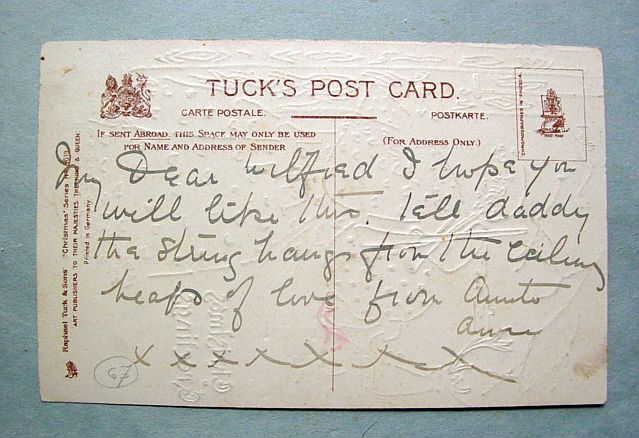 TUCK'S POST CARD.
CARTE POSTALE.
POSTKARTE.
IF SENT ABROAD, THIS SPACE MAY ONLY BE USED
FOR NAME AND ADDRESS OF SENDER
(FOR ADDRESS ONLY.)
My Dear Wilfred I hope you
will like this. Tell daddy
the string hangs from the ceiling
heaps of love from Aunto
Anne
x x x x x x x x
67
Raphael Tuck & Sons' "Christmas" Series
ART PUBLISHERS TO THEIR MAJESTIES THE KING & QUEEN.
Printed in Germany.
CHROMOGRAPHED IN PRUSSIA.
TRADE MARK